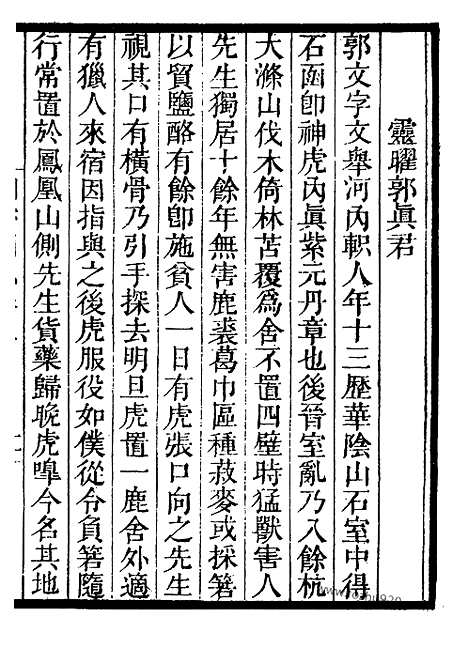 靈曜郭眞君
郭文字文舉河內軹人年十三歷華陰山石室中得
石函卽神虎內眞紫元丹章也後晉室亂乃入餘杭
大滌山伐木倚林苫覆爲舍不置四壁時猛獸害人
先生獨居十餘年無害鹿裘葛巾區種菽麥或採箬
以貿鹽酪有餘卽施貧人一日有虎張口向之先生
視其口有橫骨乃引手探去明旦虎置一鹿舍外適
有獵人來宿因指與之後虎服役如僕從令負箬隨
行常置於鳳凰山側先生貨藥歸晚虎嘷今名其地